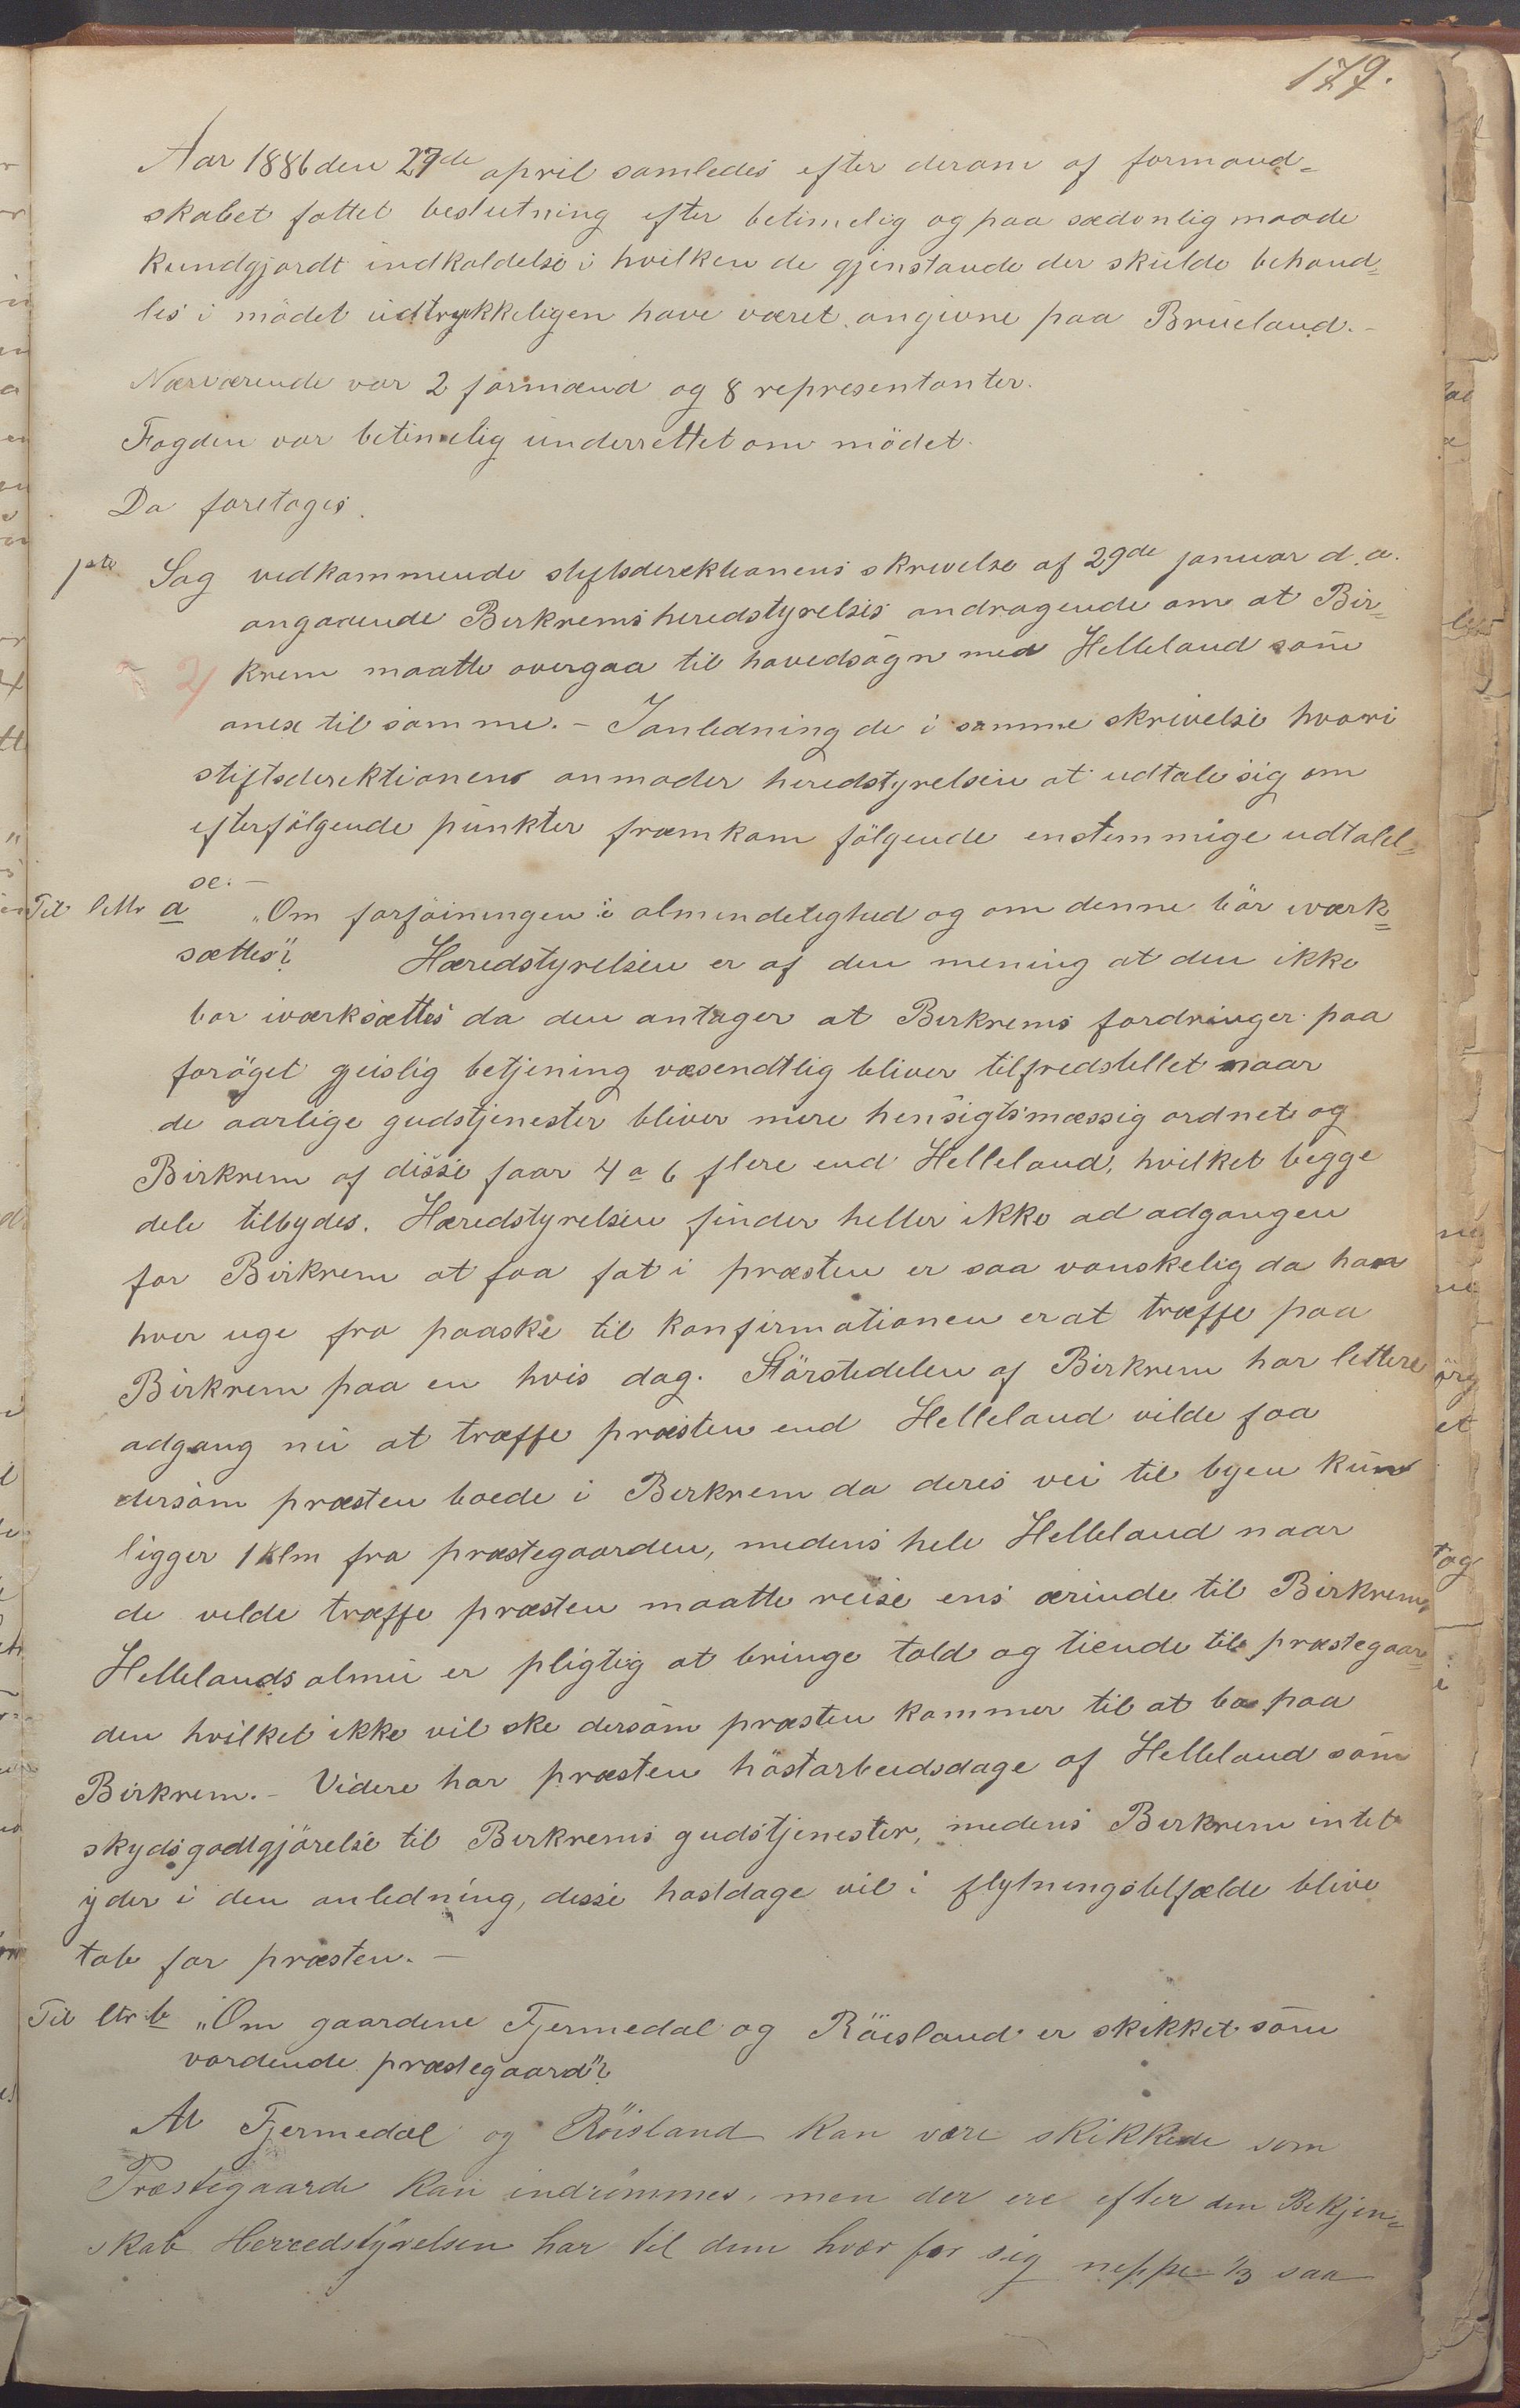 179.
Aar 1886 den 27de april samledes efter derom af formand-
skabet fattet beslutning efter betimelig og paa sædvanlig maade
kundgjordt indkaldelse i hvilken de gjenstande der skulde behand-
les i mödet udtrykkeligen have været angivne paa Brueland.-
Nærværende var 2 formænd og 8 representanter.
Fogden var betimelig underrettet om mödet.
Da foretoges.
1ste Sag vedkommende stiftsderektionens skrivelse af 29de januar d. a.
angaaende Birkrems heredstyrelses andragende om at Bir-
krem maatte overgaa til hovedsogn med Helleland som
anex til samme. - I anledning de i samme skrivelse hvori
stiftsderektionens anmoder heredstyrelsen at udtale sig om
efterfölgende punkter fræmkom fölgende enstemmige udtalel-
se. -
Til lettr a „Om forföiningen i almindelighed og om denne bör iværk-
sættes"? Hæredstyrelsen er af den mening at den ikke
bor iværksættes da den antager at Birkrems fordringer paa
foröget geislig betjening væsendtlig bliver tilfredstillet naar
de aarlige gudstjenester bliver mere hensigtsmæssig ordnet og
Birkrem af disse faar 4 a 6 flere end Helleland, hvilket begge
dele tilbydes. Hæredstyrelsen finder heller ikke ad adgangen
for Birkrem at faa fat i præsten er saa vanskelig da han
hver uge fra paaske til konfirmationen er at træffe paa
Birkrem paa en hvis dag. Störstedelen af Birkrem har lettere
adgang nu at træffe præsten end Helleland vilde faa
dersom præsten boede i Birkrem da deres vei til byen kun
ligger 1 klm fra præstegaarden, medens hele Helleland naar
de vilde træffe præsten maatte reise ens ærinde til Birkrem.
Hellelands almu er pligtig at bringe told og tiende til præstegaar-
den hvilket ikke vil ske dersom præsten kommer til at bo paa
Birkrem. - Videre har præsten höstarbeidsdage af Helleland som
skydsgodtgjörelse til Birkrems gudstjenester, medens Birkrem intet
yder i den anledning, desse høstdage vil i flytningstelfælde blive
tab for præsten. -
Til ltr b „Om gaardene Fjermedal og Röisland er skikket som
vordende præstegaard"?
At Fjermedal og Röisland kan være skikkede som
Præstegaarde kan indrömmes, men der ere efter den Bekjen-
skab Herredstyrelsen har til dem hver for sig neppe 1/3 saa